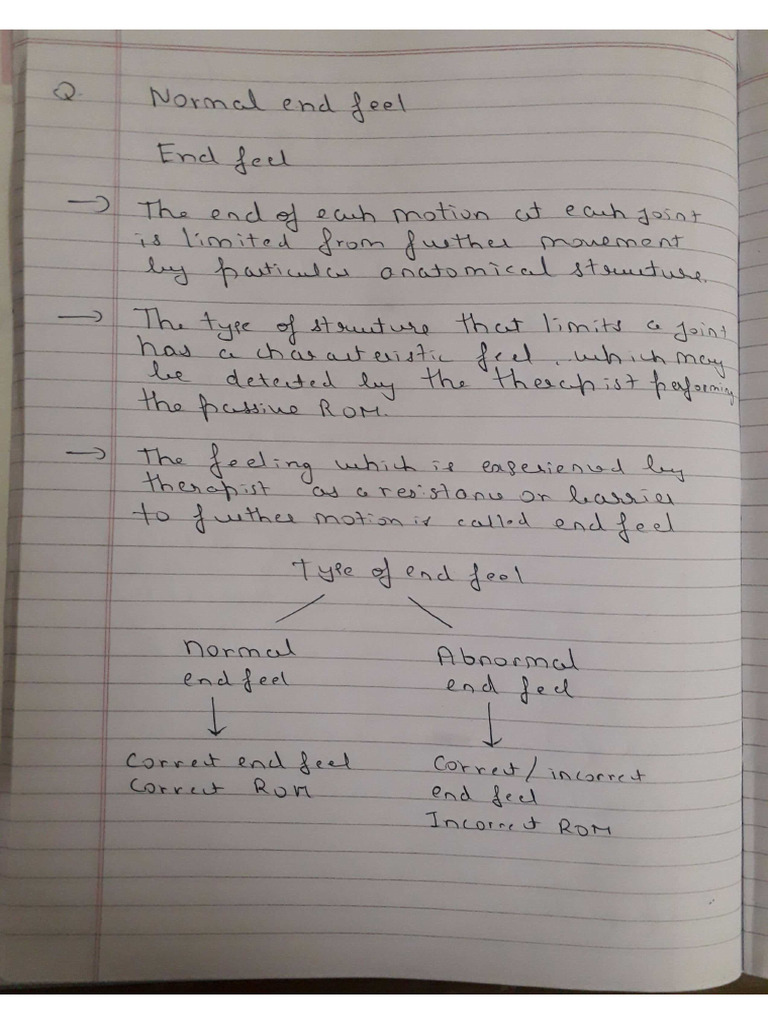 Q. Normal end feel
End feel
→ The end of each motion at each joint
is limited from further movement
by particular anatomical structure.
→ The type of structure that limits a joint
has a characteristic feel, which may
be detected by the therapist performing
the passive ROM.
→ The feeling which is experienced by
therapist as a resistance or barrier
to further motion is called end feel
Type of end feel
Normal Abnormal
end feel end feel
Correct end feel Correct/incorrect
Correct ROM end feel
Incorrect ROM